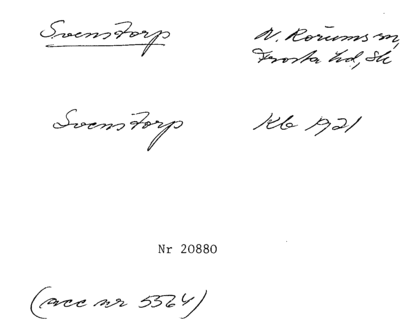 Svenstorp
N. Rörums sn,
Frosta hd, Sk
Svenstorp
Kb 1921
Nr 20880
(acc nr 5564)